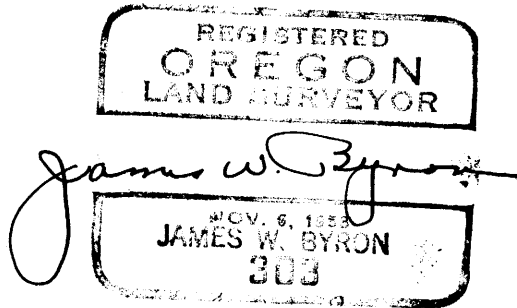 REGISTERED
OREGON
LAND SURVEYOR
James W. Byron
NOV. 6, 1953
JAMES W. BYRON
303